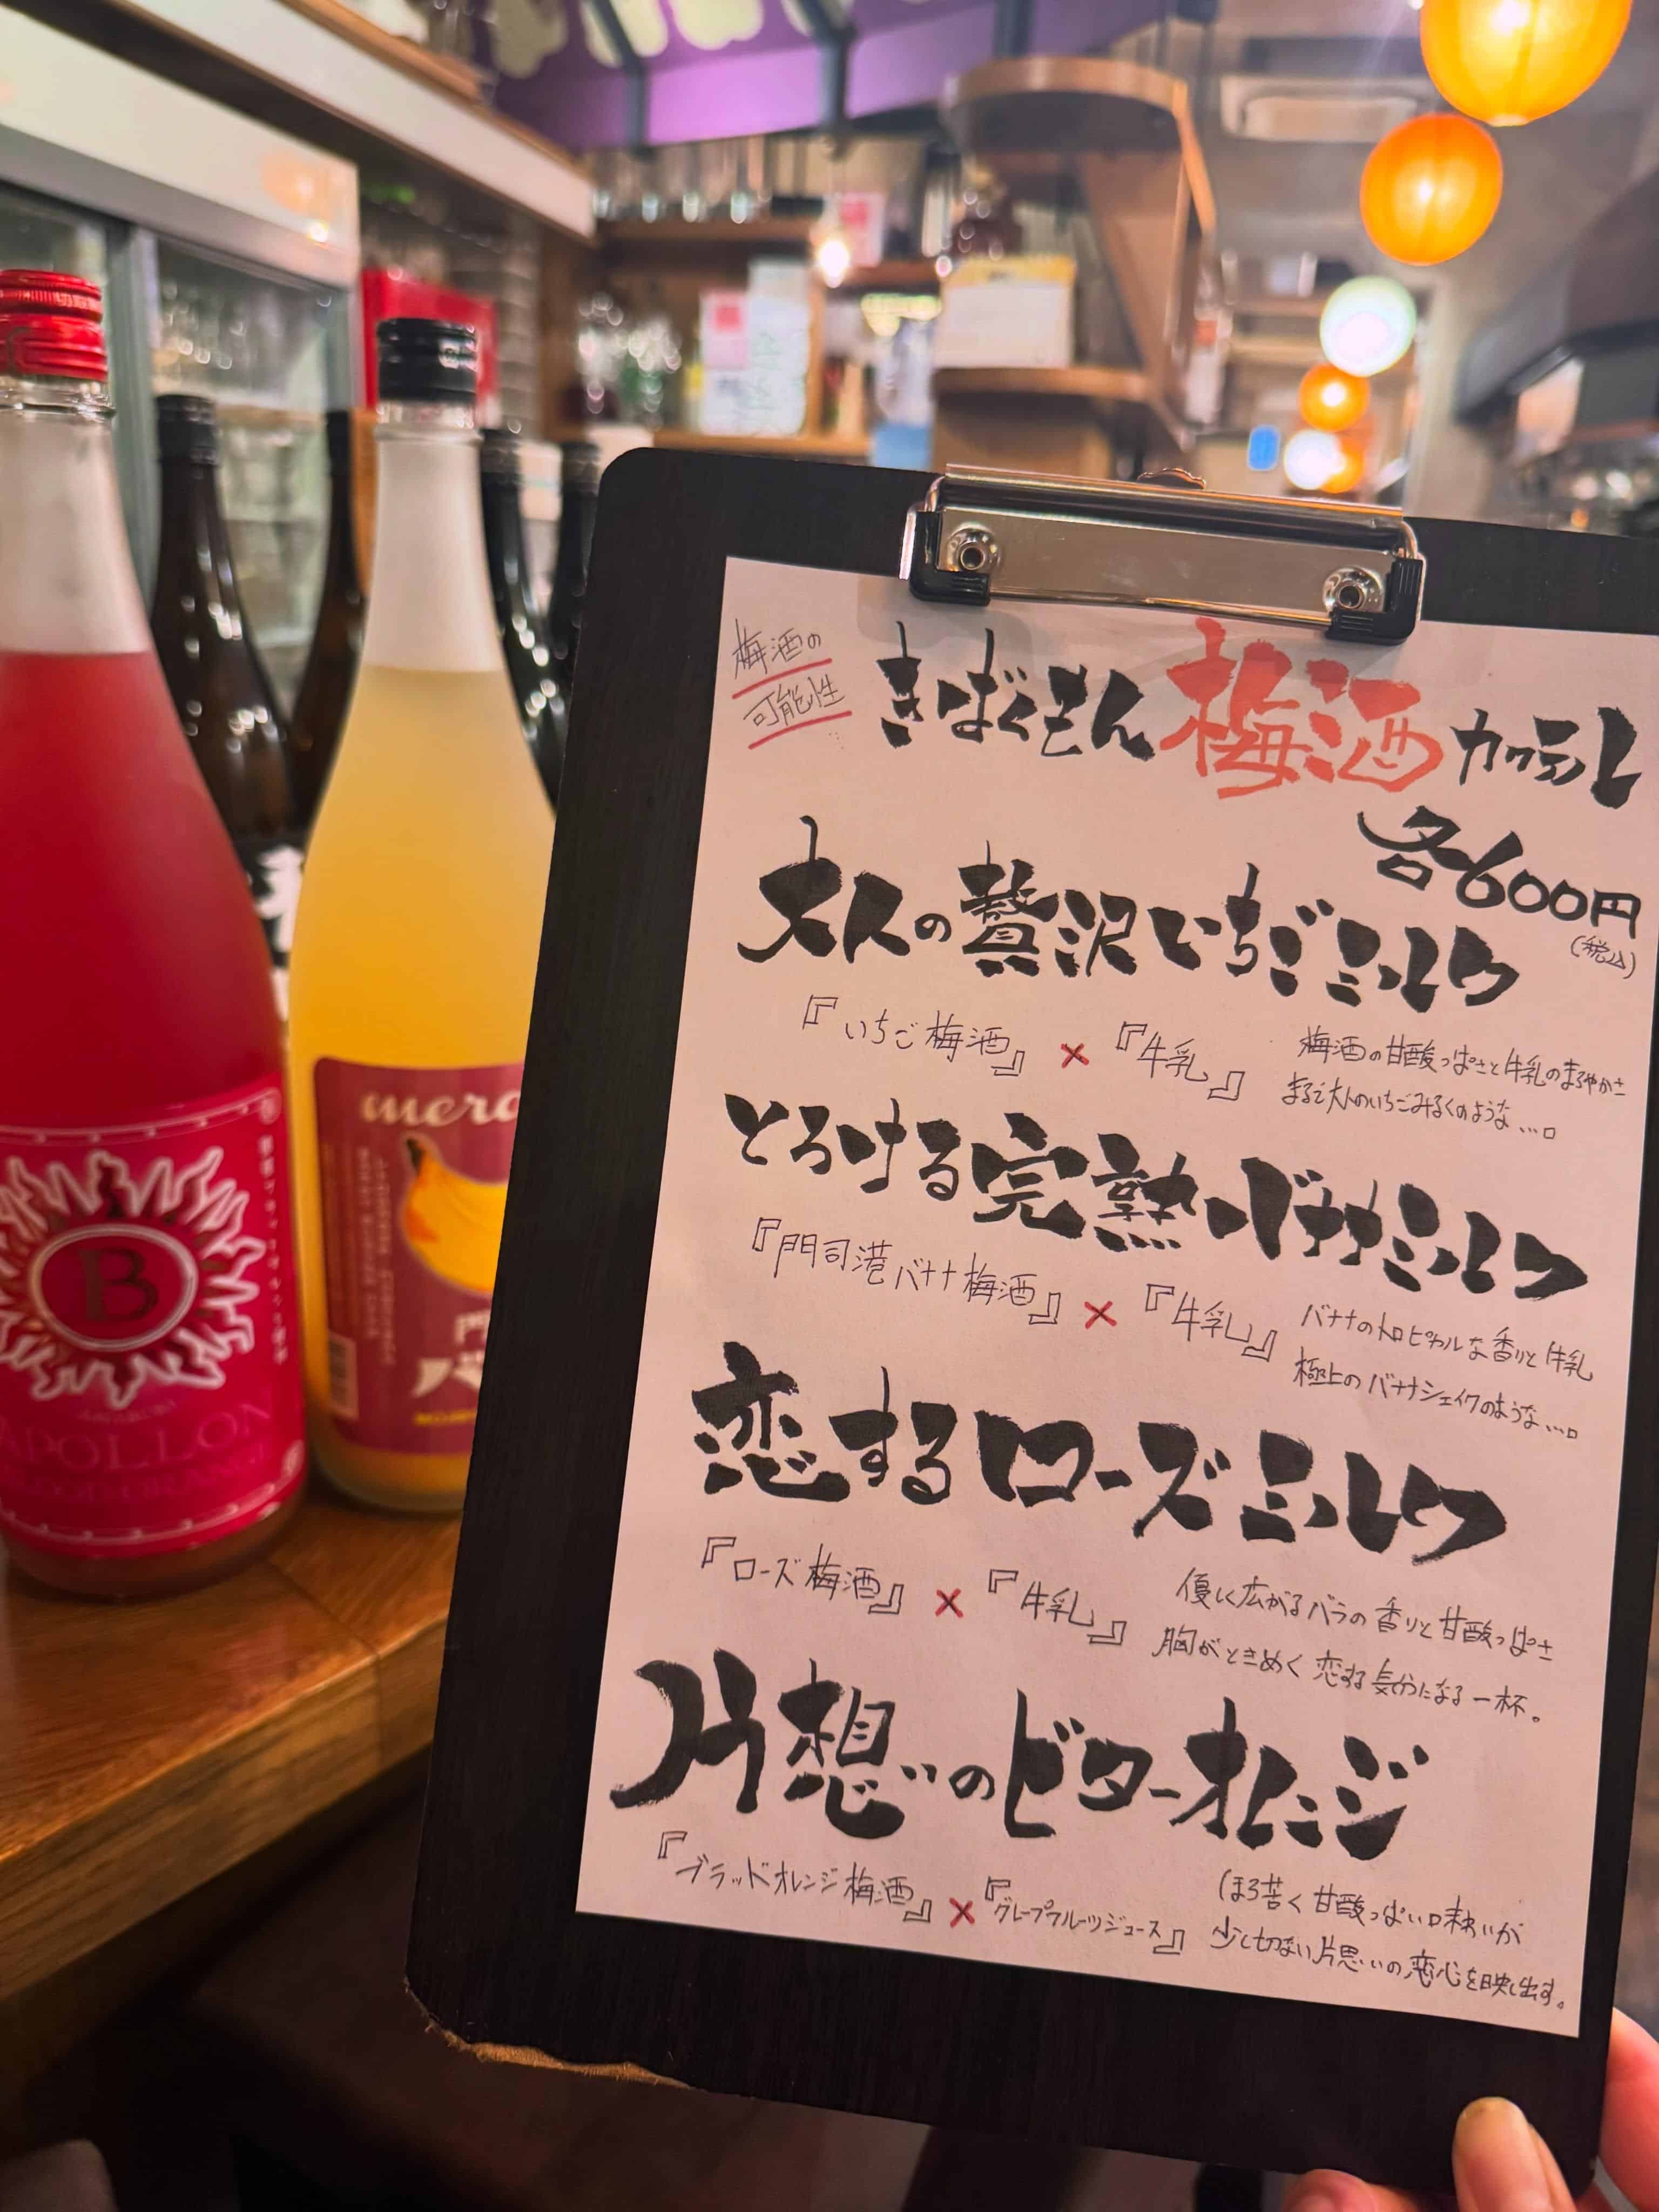 梅酒の
可能性
きばくもん梅酒カクテル
各600円
(税込)
大人の贅沢いちごミルク
『いちご梅酒』×『牛乳』
梅酒の甘酸っぱさと牛乳のまろやかさ
まるで大人のいちごみるくのような...。
とろける完熟バナナミルク
『門司港バナナ梅酒』×『牛乳』
バナナのトロピカルな香りと牛乳
極上のバナナシェイクのような...。
恋するローズミルク
『ローズ梅酒』×『牛乳』
優しく広がるバラの香りと甘酸っぱさ
胸がときめく恋する気分になる一杯。
片想いのビターオレンジ
『ブラッドオレンジ梅酒』×『グレープフルーツジュース』
ほろ苦く甘酸っぱい味わいが
少し切ない片思いの恋心を映し出す。
B
APOLLON
merc
門
バ